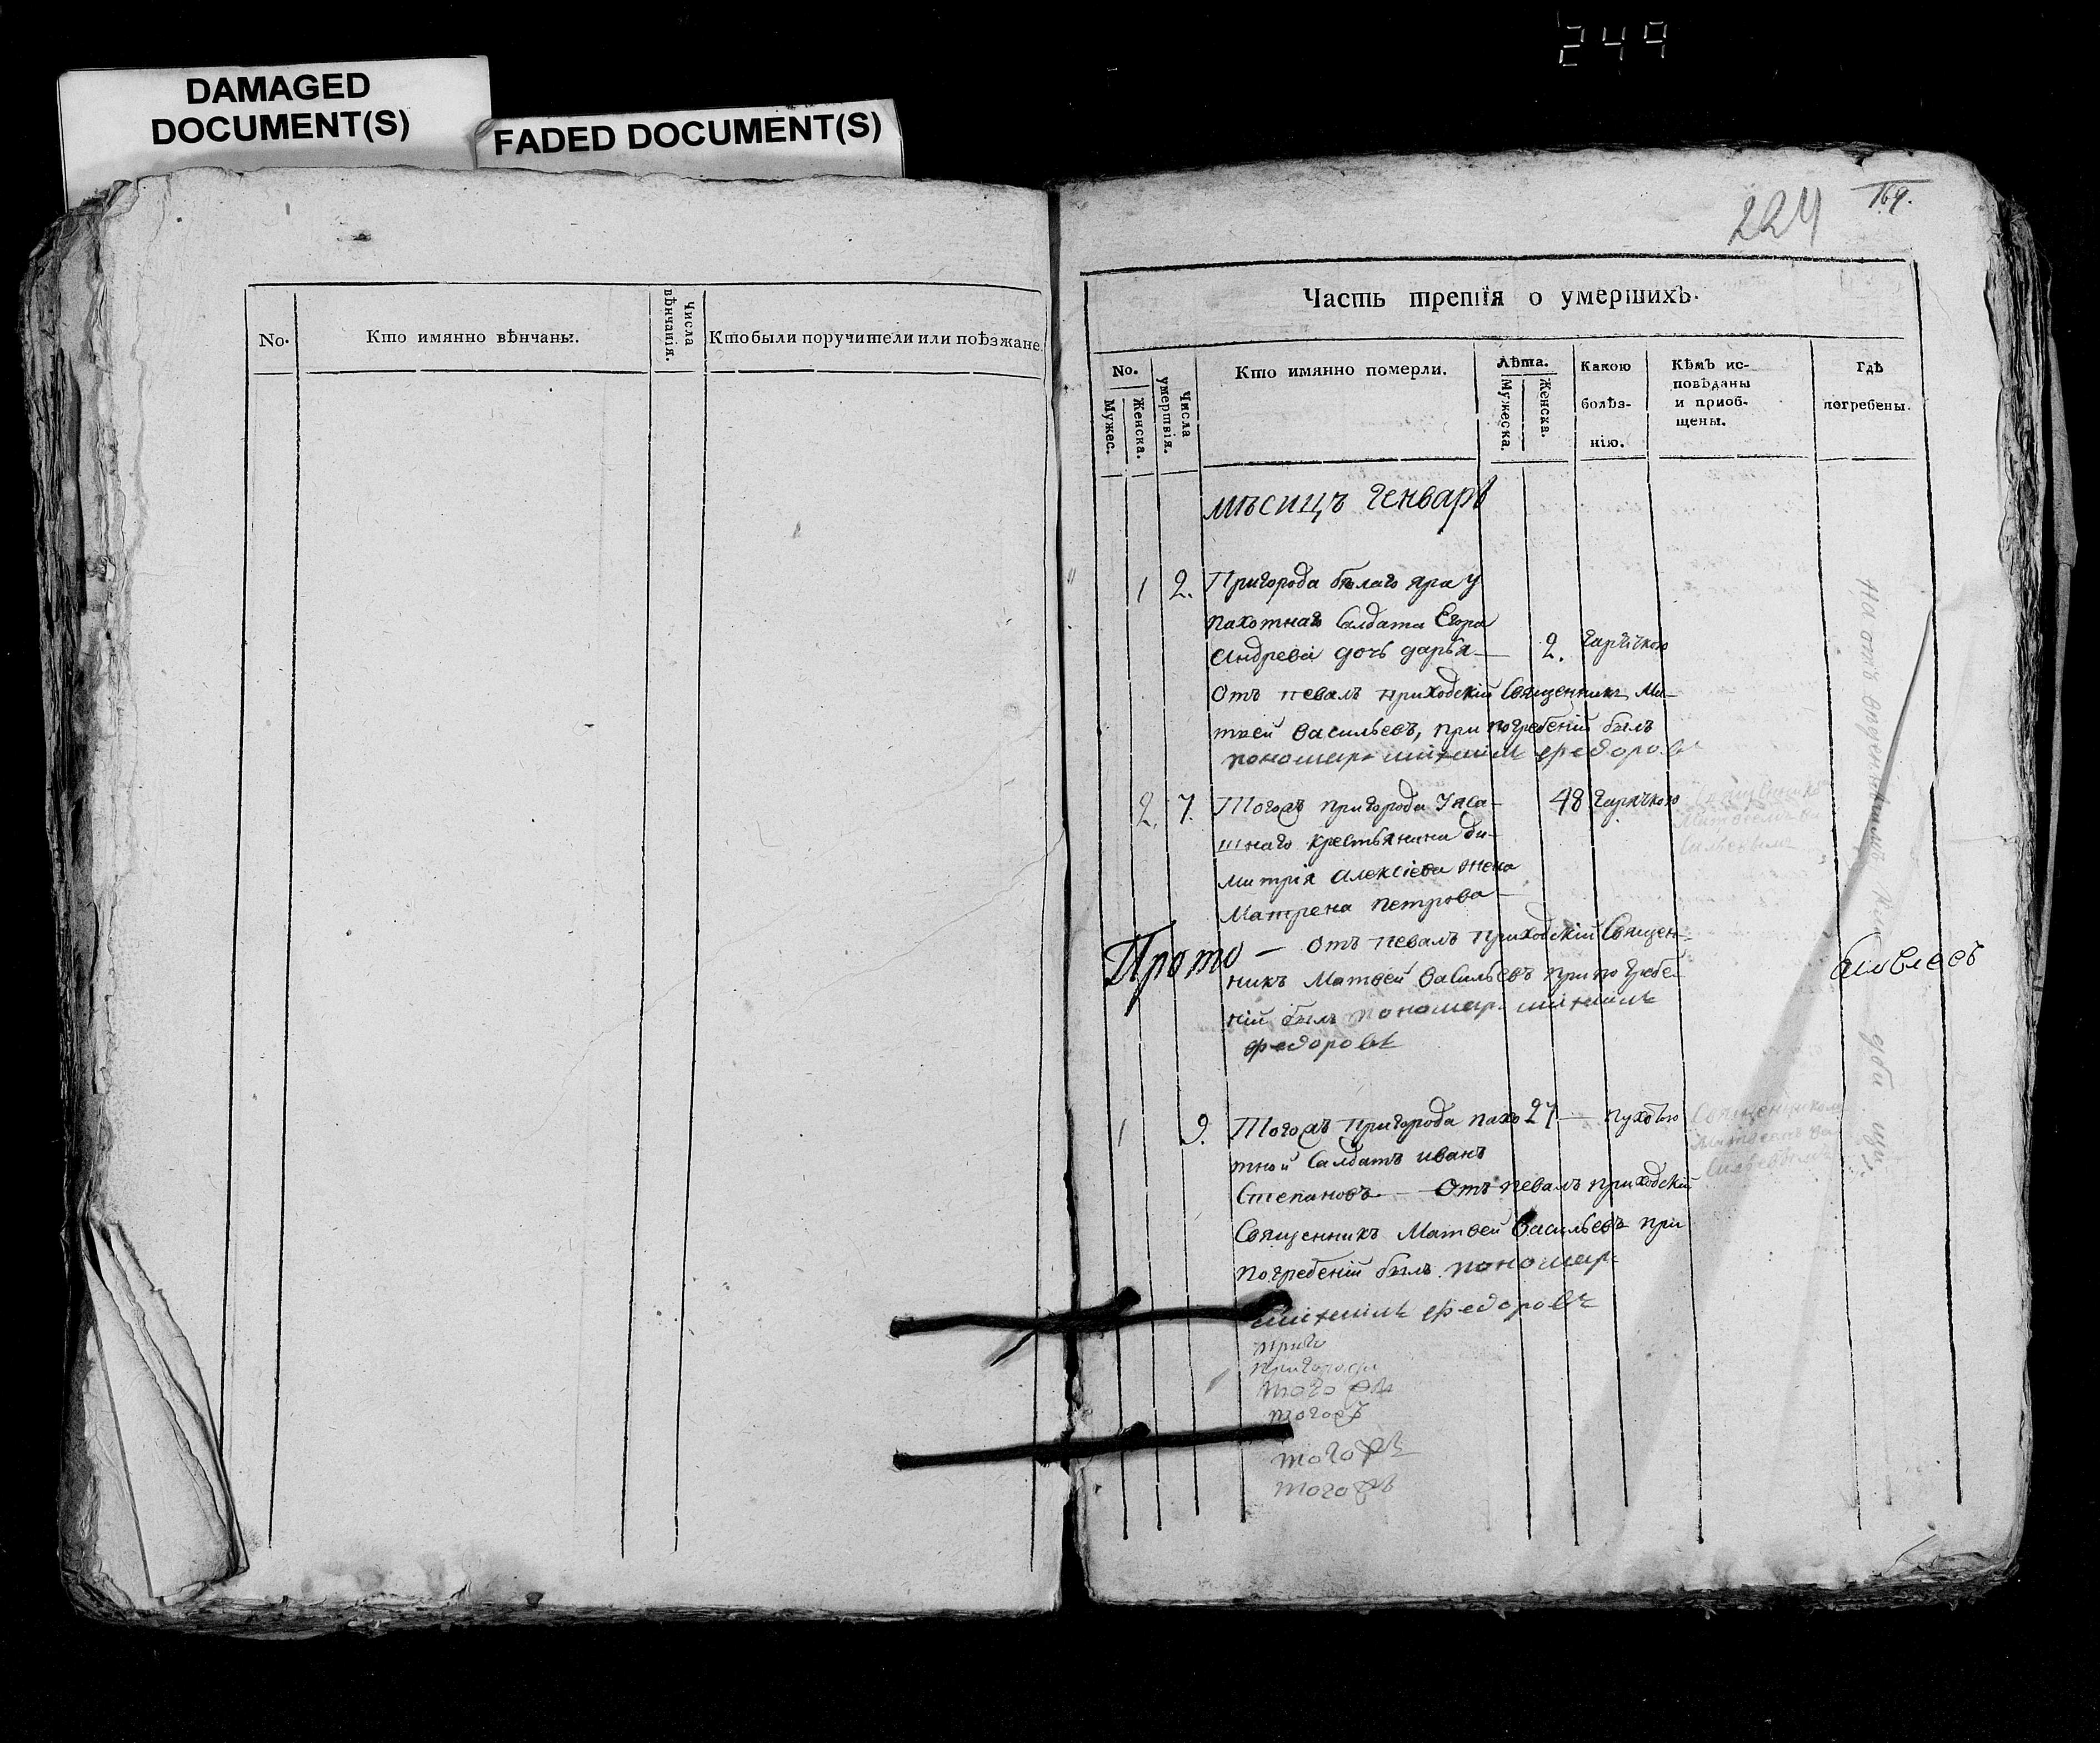 249
DAMAGED
DOCUMENT(S)
FADED DOCUMENT(S)
No.
Кто имянно вѣнчаны.
Числа
вѣнчанія.
Кто были поручители или поѣзжане.
224
169.
Часть третія о умершихъ.
No.
Мужес.
Женска.
Числа
умертвія.
Кто имянно померли.
Лѣта.
Мужеска.
Женска.
Какою
болѣз-
нію.
Кѣмъ ис-
повѣданы
и пріоб-
щены.
Гдѣ
погребены.
мѣсицъ Генварь
1 2. Пригорода бѣлаго яра у
пахотнаго Салдата Егора
Андреева дочь дарья — 2. гарячкою
Отъ певалъ приходскій Священникъ Ма-
твей Васильевъ, при погребеніи былъ
пономарь федоровъ
2. 7. Тогожъ пригорода Ясa-
шнаго крестьянина ди- 48 гарячкою
митрія Алексіева жена
Матрена Петрова —
Прото — отъ певалъ приходскій Священ-
никъ Матвей Васильевъ при погребе-
ніи былъ пономарь
федоровъ
Яковлевъ
1 9. Тогожъ пригорода пахо 27 — пухотою
тной Салдатъ иванъ
Степановъ — Отъ певалъ приходскій
Священникъ Матвей Васильевъ при
погребеніи былъ пономарь
федоровъ
Священником
Матвеемъ Ва
сильевымъ
приго
пригорода
тогожъ
тогожъ
тогожъ
тогожъ